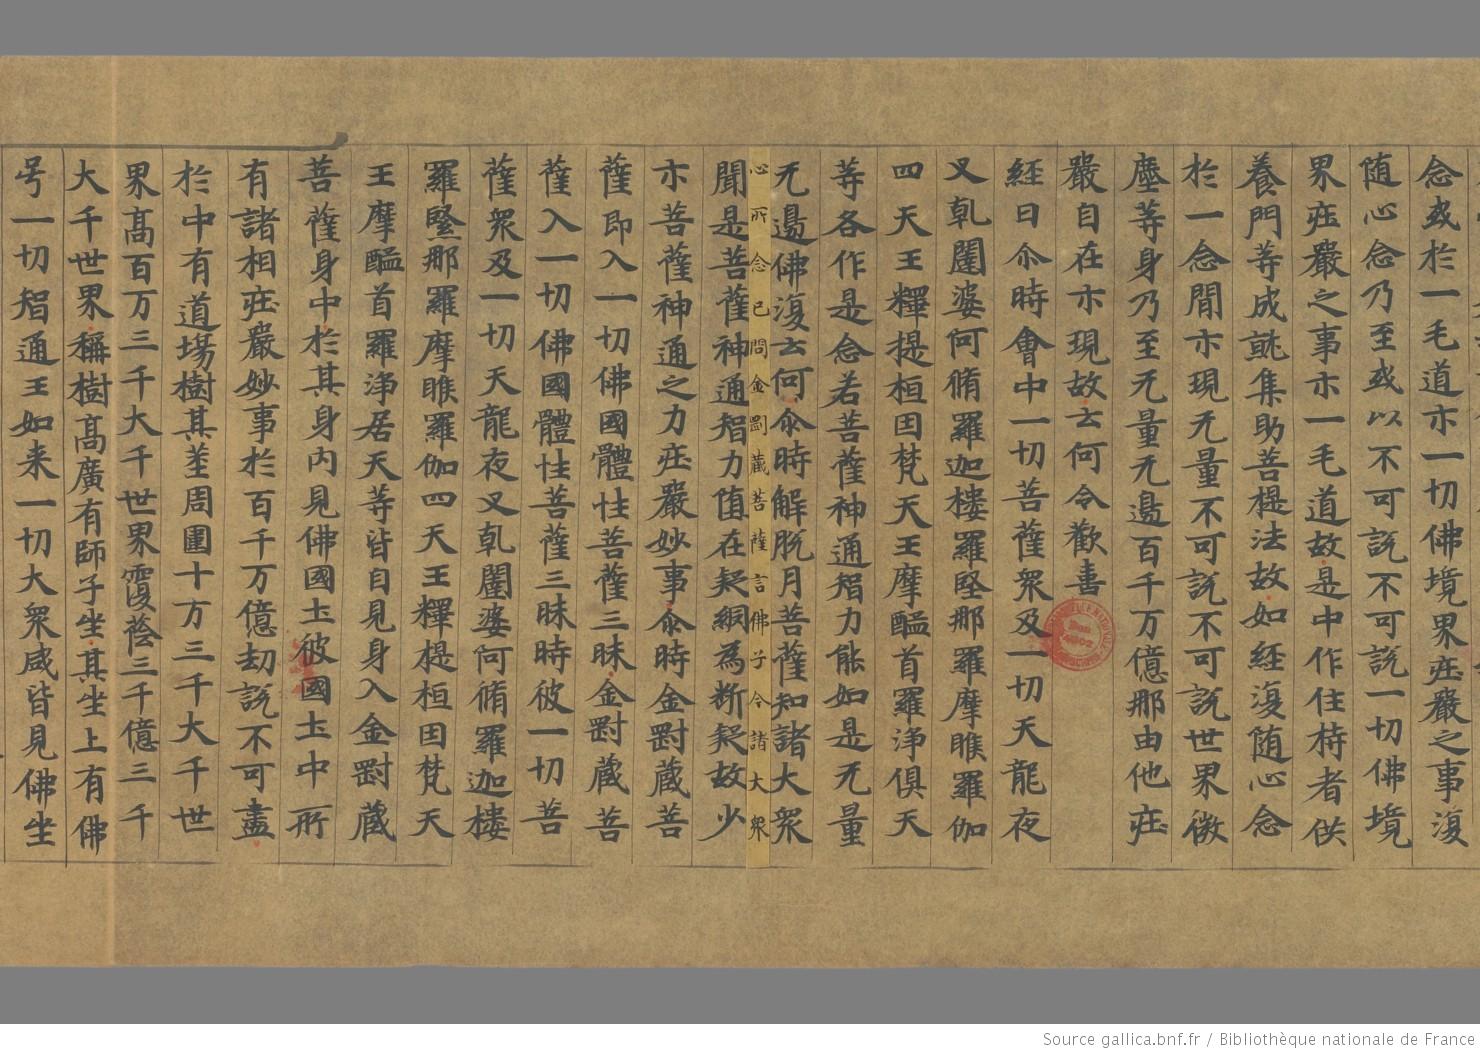 念或於一毛道亦一切佛境界庄嚴之事復
随心念乃至或以不可説不可説一切佛境
界庄嚴之事亦一毛道故是中作住持者供
養門等成就集助菩提法故如經復随心念
於一念間亦現无量不可説不可説世界微
塵等身乃至无量无邊百千万億那由他莊
嚴自在亦現故云何令歡喜
經曰尒時會中一切菩薩衆及一切天龍夜
叉乹闥婆阿脩羅迦楼羅緊那羅摩睺羅伽
四天王釋提桓因梵天王摩醯首羅浄俱天
等各作是念若菩薩神通智力能如是无量
无邊佛復云何尒時解脱月菩薩知諸大衆
心所念已問金剛藏菩薩言佛子今諸大衆
聞是菩薩神通智力堕在疑網為斷疑故少
示菩薩神通之力庄嚴妙事尒時金剛藏菩
薩即入一切佛國體性菩薩三昧金剛藏菩
薩入一切佛國體性菩薩三昧時彼一切菩
薩衆及一切天龍夜叉乹闥婆阿脩羅迦樓
羅緊那羅摩睺羅伽四天王釋提桓因梵天
王摩醯首羅浄居天等皆自見身入金剛藏
菩薩身中於其身内見佛國土彼國土中所
有諸相庄嚴妙事於百千万億劫説不可盡
於中有道場樹其莖周圍十方三千大千世
界髙百万三千大千世界覆蔭三千億三千
大千世界稱樹髙廣有師子坐其坐上有佛
号一切智通王如来一切大衆咸皆見佛坐
Source gallica.bnf.fr / Bibliothèque nationale de France